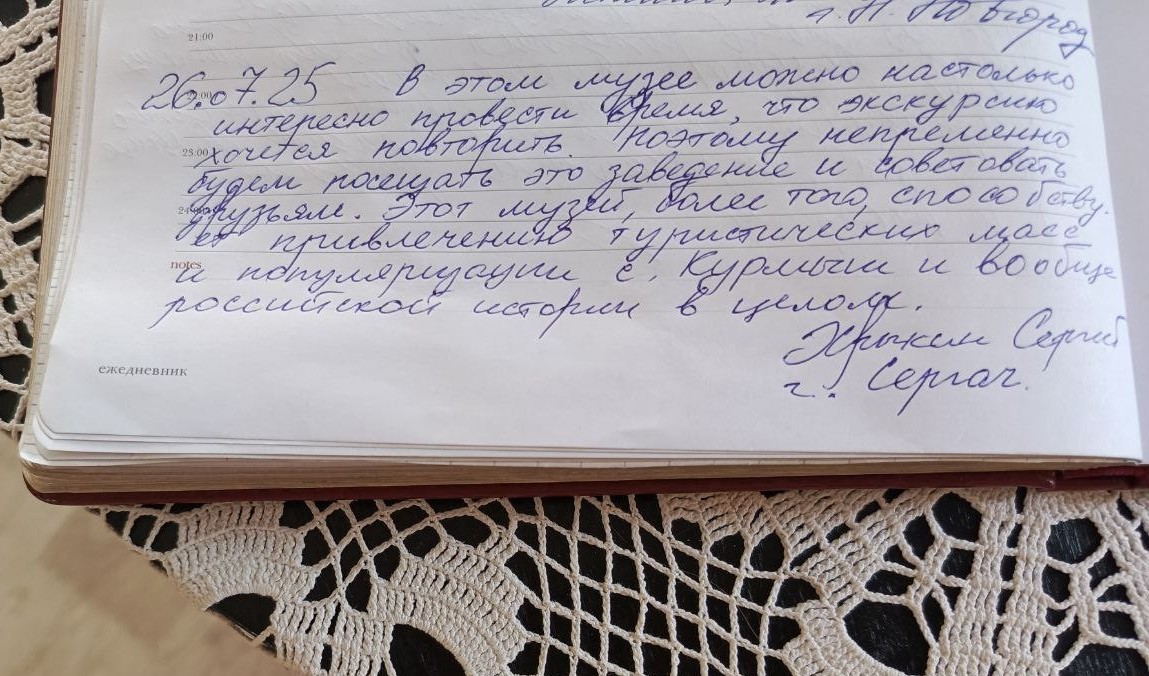 г. Н. Новгород
21:00
26.07.25 В этом музее можно настолько
22:00
интересно провести время, что экскурсию
23:00 хочется повторить. Поэтому непременно
будем посещать это заведение и советовать
24:00
друзьям. Этот музей, более того, способству-
ет привлечению туристических масс
notes
и популяризации с. Курмыш и вообще
российской истории в целом.
Сергей
г. Сергач.
ежедневник